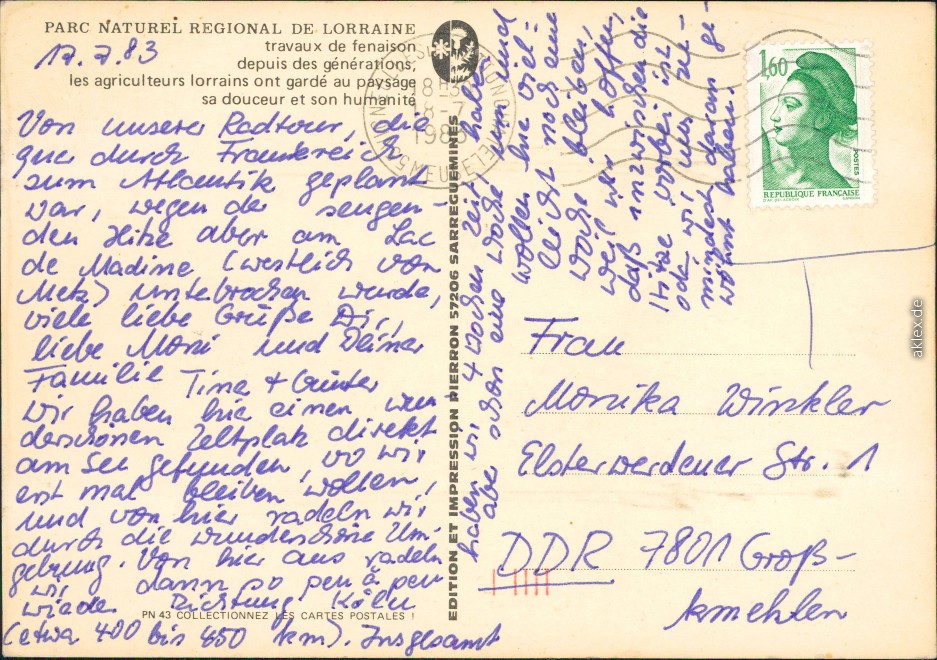 PARC NATUREL REGIONAL DE LORRAINE
travaux de fenaison
depuis des générations,
les agriculteurs lorrains ont gardé au paysage
sa douceur et son humanité
17.7.83
Von unserer Radtour, die
quer durch Frankreich
zum Atlantik geplant
war, wegen der sengen-
den Hitze aber am Lac
de Madine (westlich von
Metz) unterbrochen wurde,
viele liebe Grüße Dir,
liebe Moni und Deiner
Familie Tina + Günter
Wir haben hier einen wun
derschönen Zeltplatz direkt
am See gefunden, wo wir
erst mal bleiben wollen,
und von hier radeln wir
durch die wunderschöne Um-
gebung. Von hier aus radeln
wir dann so peu à peu
wieder Richtung Köln
(etwa 400 bis 450 km). Insgesamt
haben wir 4 Wochen Zeit, haben
aber schon eine Woche um und
wollen hier viel-
leicht noch eine
Woche bleiben,
weil wir hoffen,
daß inzwischen die
Hitze vorbei ist
oder wir uns zu-
mindest daran ge-
wöhnt haben.
PN 43 COLLECTIONNEZ LES CARTES POSTALES !
EDITION ET IMPRESSION PIERRON 57206 SARREGUEMINES
18-7
1983
1,60
POSTES
REPUBLIQUE FRANÇAISE
Frau
Monika Winkler
Elsterwerdaer Str. 1
DDR 7801 Groß-
kmehlen
aklex.de